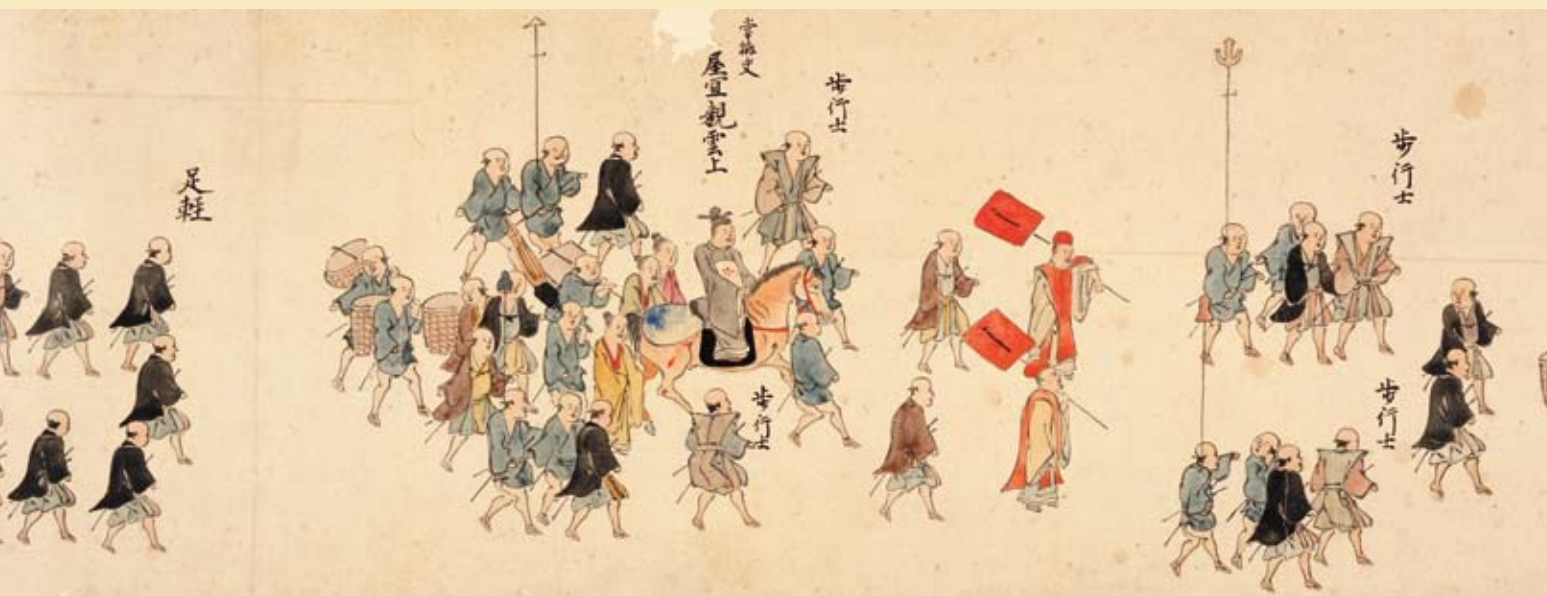 歩行士
歩行士
歩行士
掌翰史
屋宜親雲上
歩行士
足軽